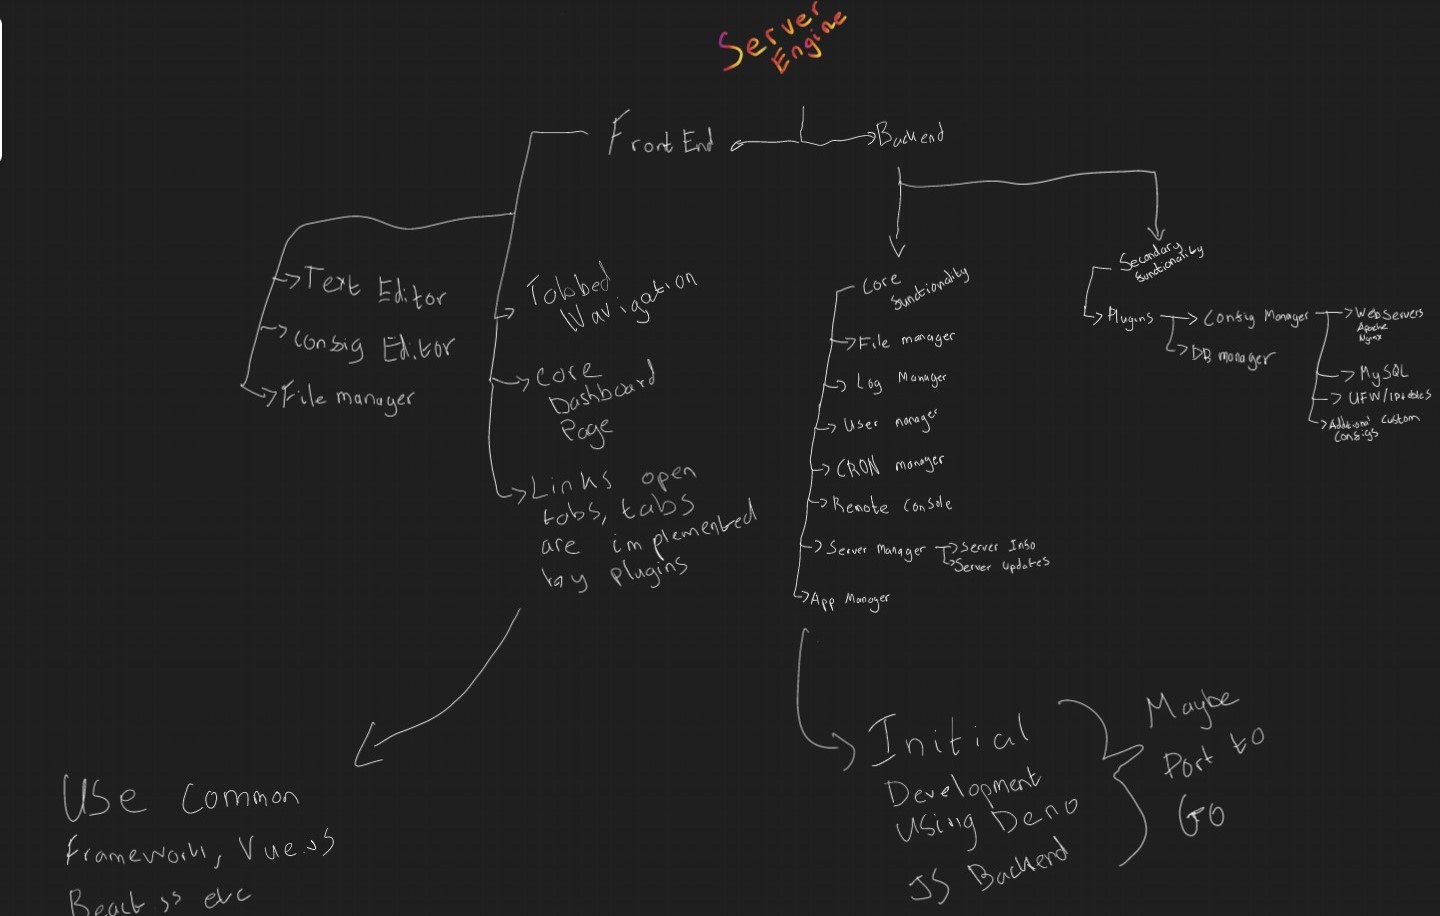 Server
Engine
Front End
Backend
Text Editor
Config Editor
File manager
Tabbed
Navigation
Core
Dashboard
Page
Links open
tabs, tabs
are implemented
by plugins
Use common
Framework, Vue.js
React.js etc
Core
functionality
File manager
Log Manager
User manager
CRON manager
Remote Console
Server Manager
Server Info
Server Updates
App Manager
Initial
Development
Using Deno
JS Backend
Maybe
Port to
Go
Secondary
functionality
Plugins
Config Manager
DB manager
WebServers
Apache
Nginx
MySQL
UFW/iptables
Additional Custom
Configs